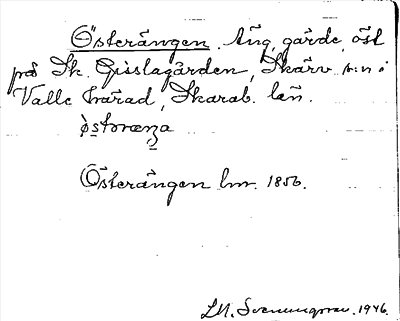 Österängen. Äng, gärde, öst
på Sk. Gisslagården, Skärv s:n i
Valle härad, Skarab. län.
Österängen lm. 1856.
L.N. Svenungsson. 1946.